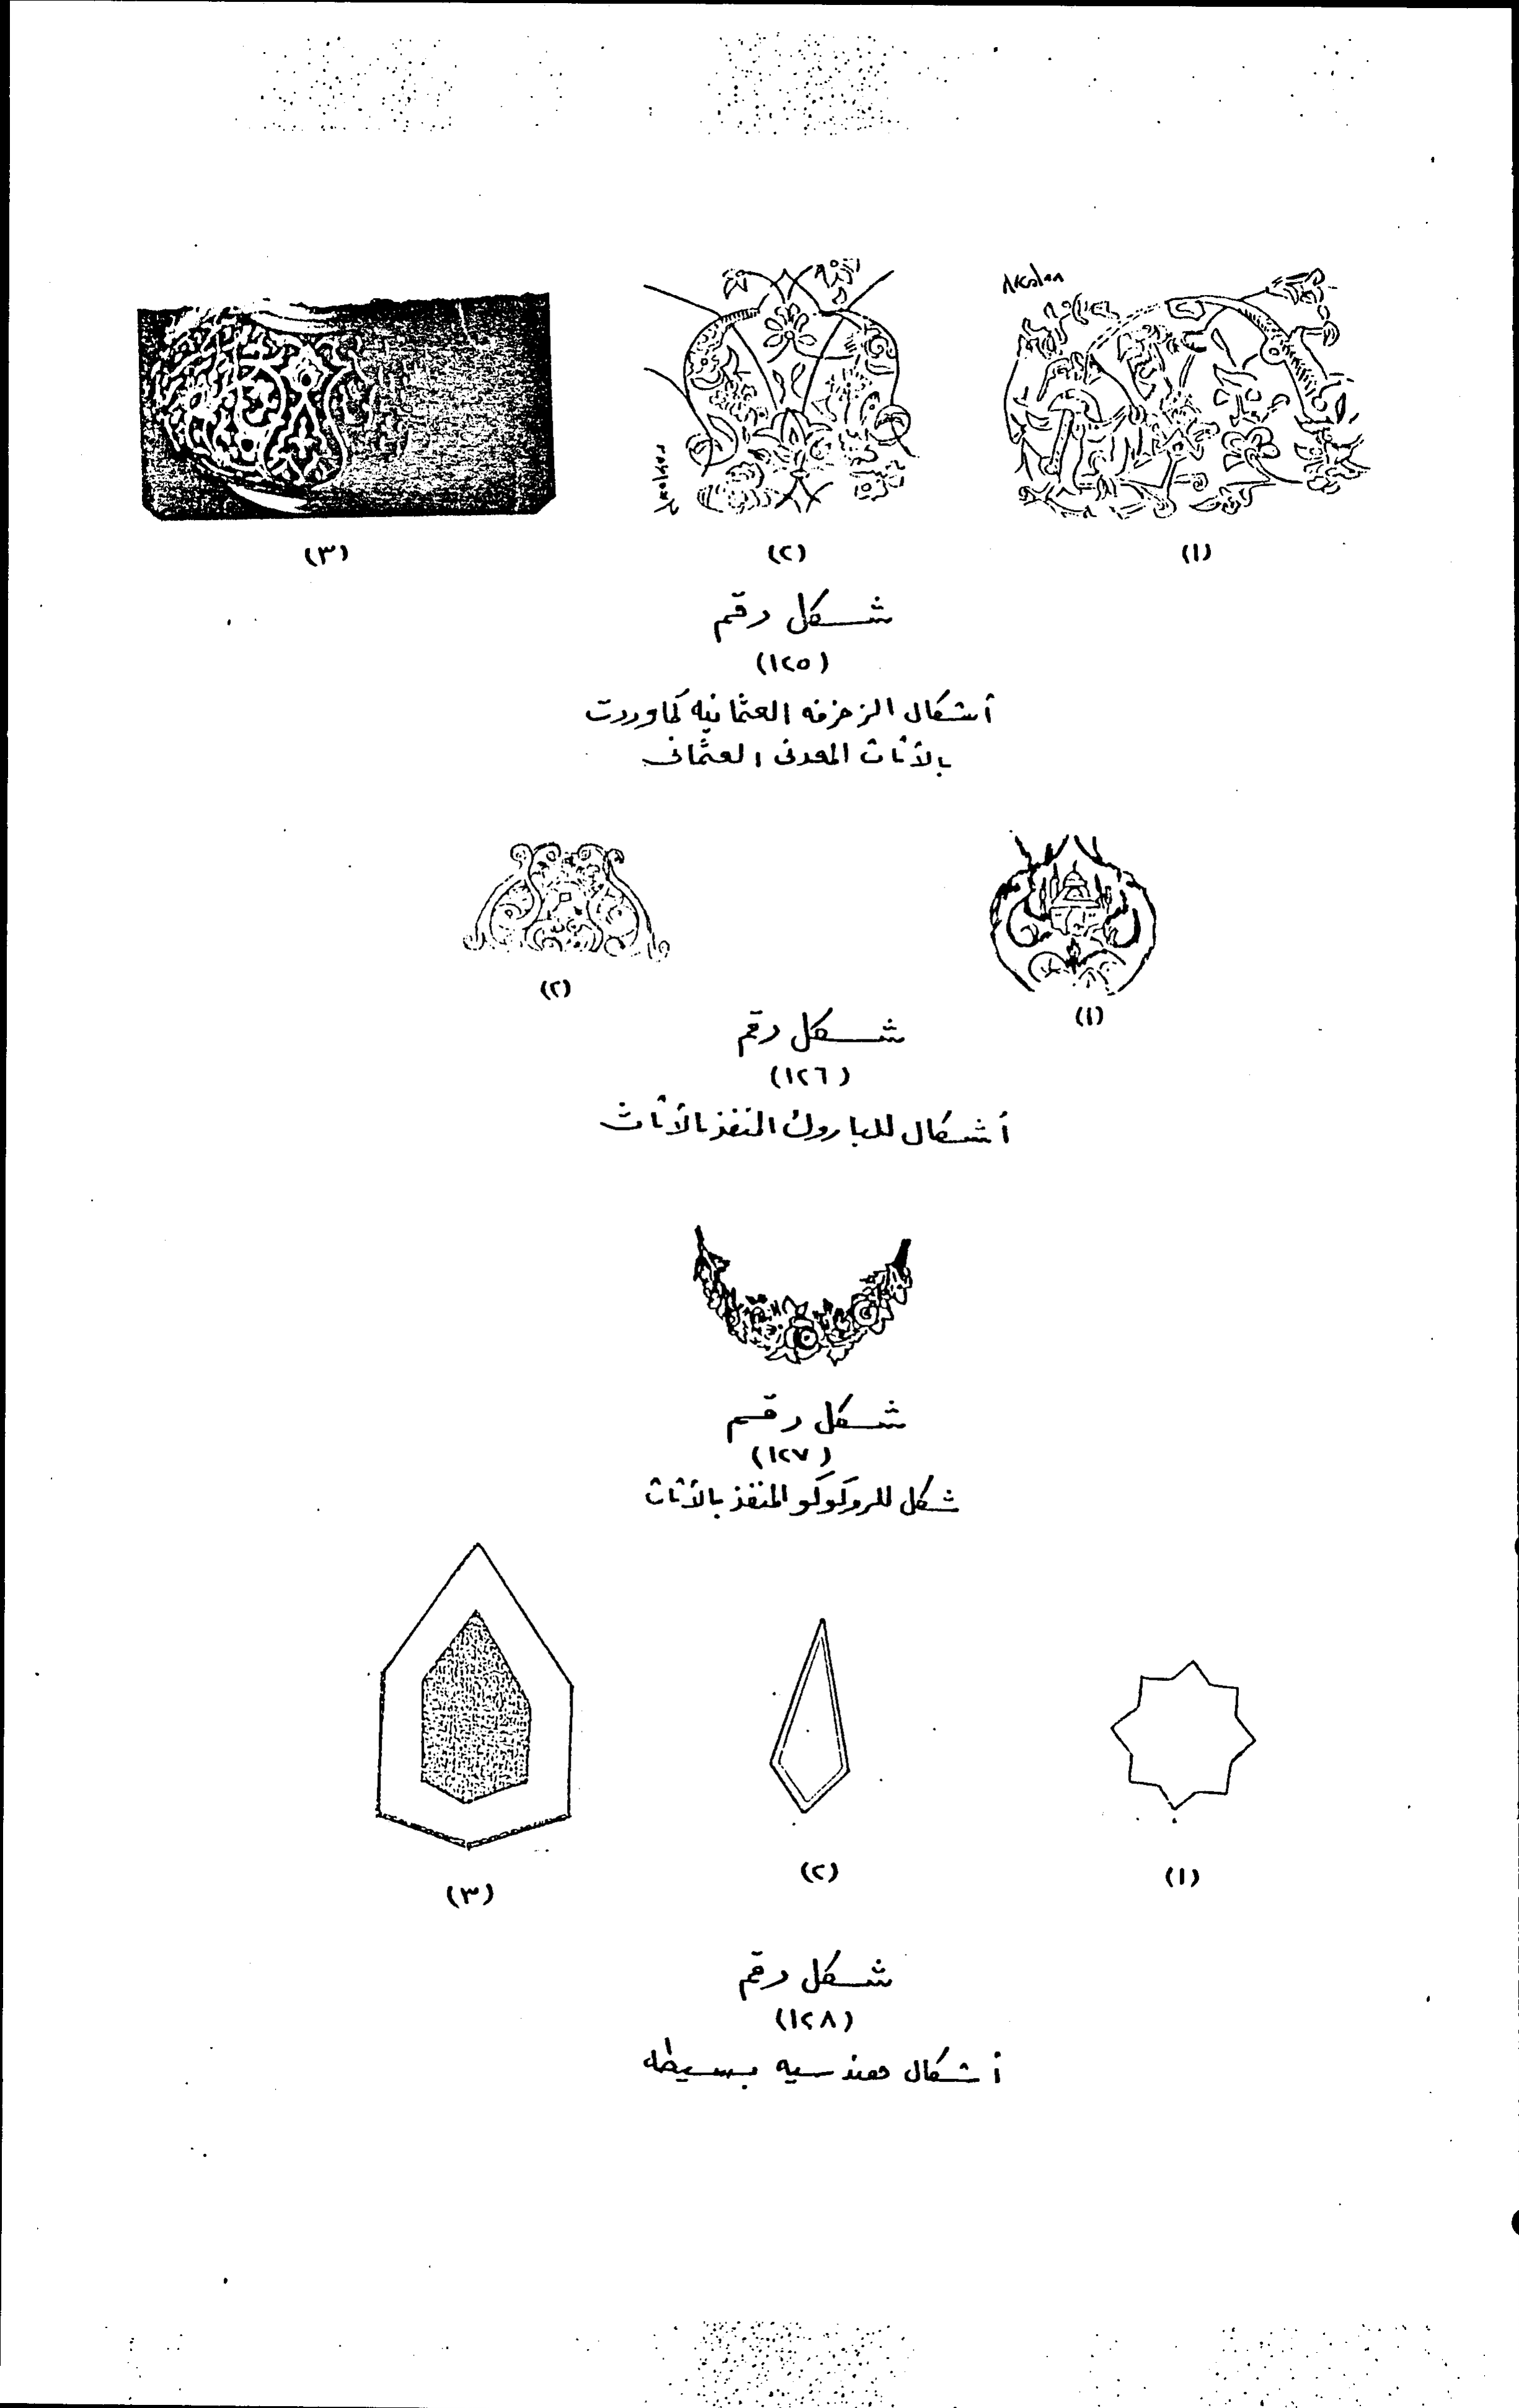 (١)
(٢)
(٣)
شكل رقم
(١٢٥)
أشكال الزخرفه العثمانيه كما وردت
بالأثاث المعدنى العثمانى
(١)
(٢)
شكل رقم
(١٢٦)
أشكال للباروك المنفذ بالأثاث
شكل رقم
(١٢٧)
شكل للروكوكو المنفذ بالأثاث
(١)
(٢)
(٣)
شكل رقم
(١٢٨)
أشكال هندسيه بسيطه